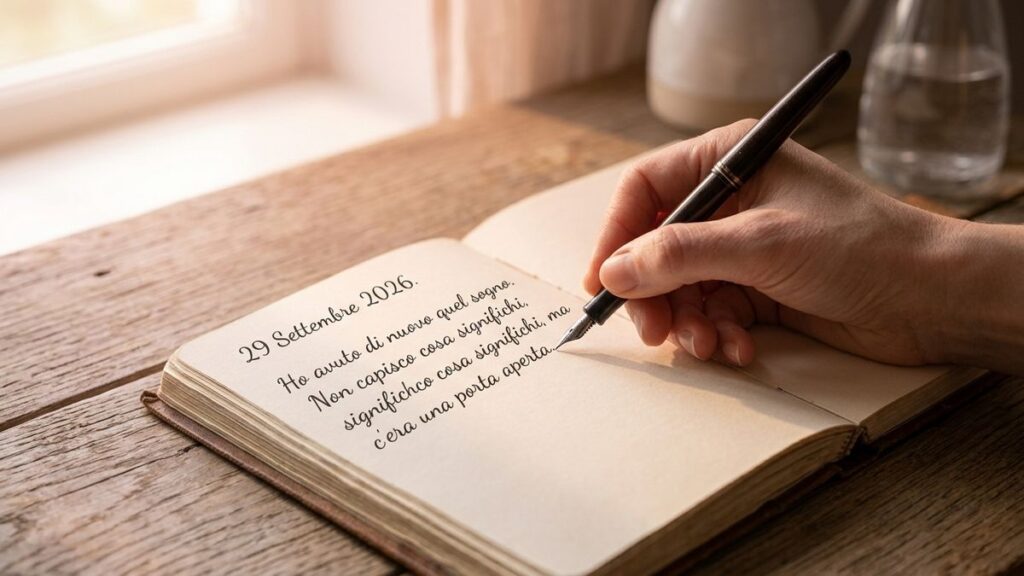 29 Settembre 2026.
Ho avuto di nuovo quel sogno.
Non capisco cosa significhi,
significhco cosa significhi, ma
c'era una porta aperta